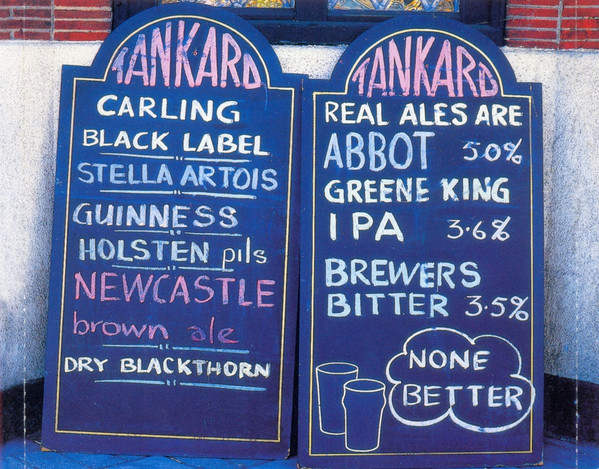 TANKARD
CARLING
BLACK LABEL
STELLA ARTOIS
GUINNESS
HOLSTEN pils
NEWCASTLE
brown ale
DRY BLACKTHORN
TANKARD
REAL ALES ARE
ABBOT 50%
GREENE KING
IPA 3.6%
BREWERS
BITTER 3.5%
NONE
BETTER